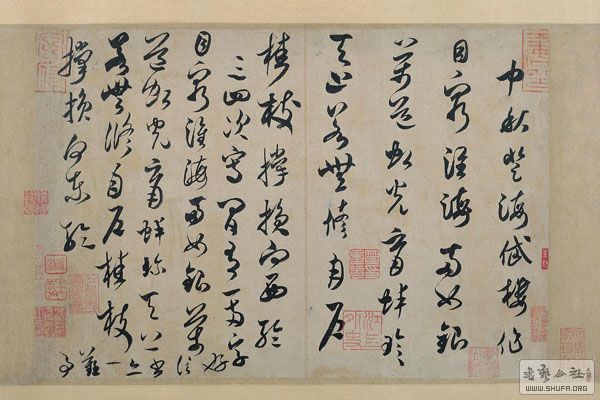 中秋登海岱樓作
目窮淮海兩如銀
萬道虹光育蚌珍
天上若無修月戶
桂枝撐損向西輪
三四次寫間有一兩字好
目窮淮海兩如銀萬信
道虹光育蚌珍天上書
若無修月戶桂枝亦一
撐損向東輪難事
書藝公社
WWW.SHUFA.ORG